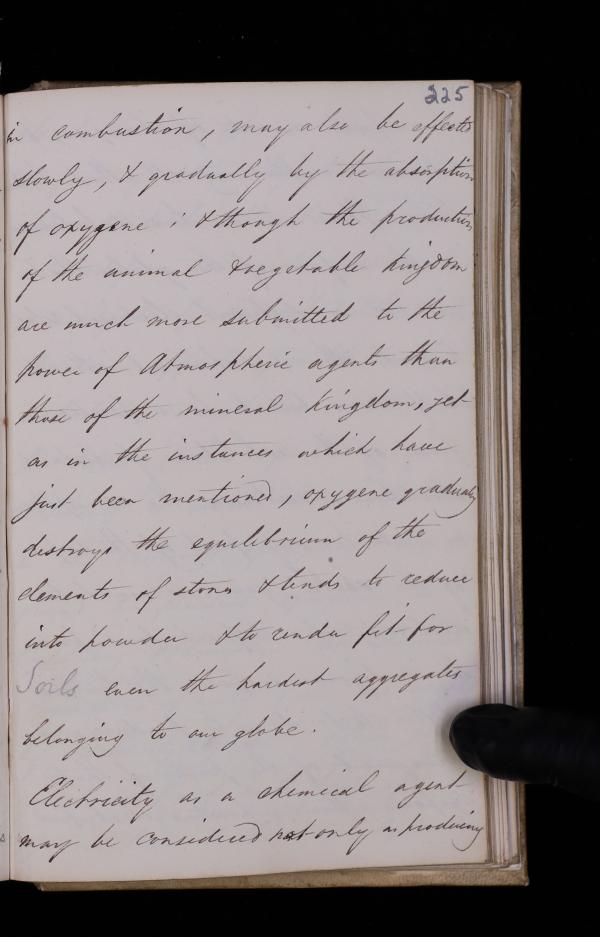 225
in combustion, may also be effected
slowly, & gradually by the absorption
of oxygene; & though the production
of the animal & vegetable kingdom
are much more submitted to the
power of Atmospheric agents than
those of the mineral kingdom, yet
as in the instances which have
just been mentioned, oxygene gradually
destroys the equilibrium of the
elements of stones & tends to reduce
into powder & to render fit for
Soils even the hardest aggregates
belonging to our globe.
Electricity as a chemical agent
may be considered not only as producing